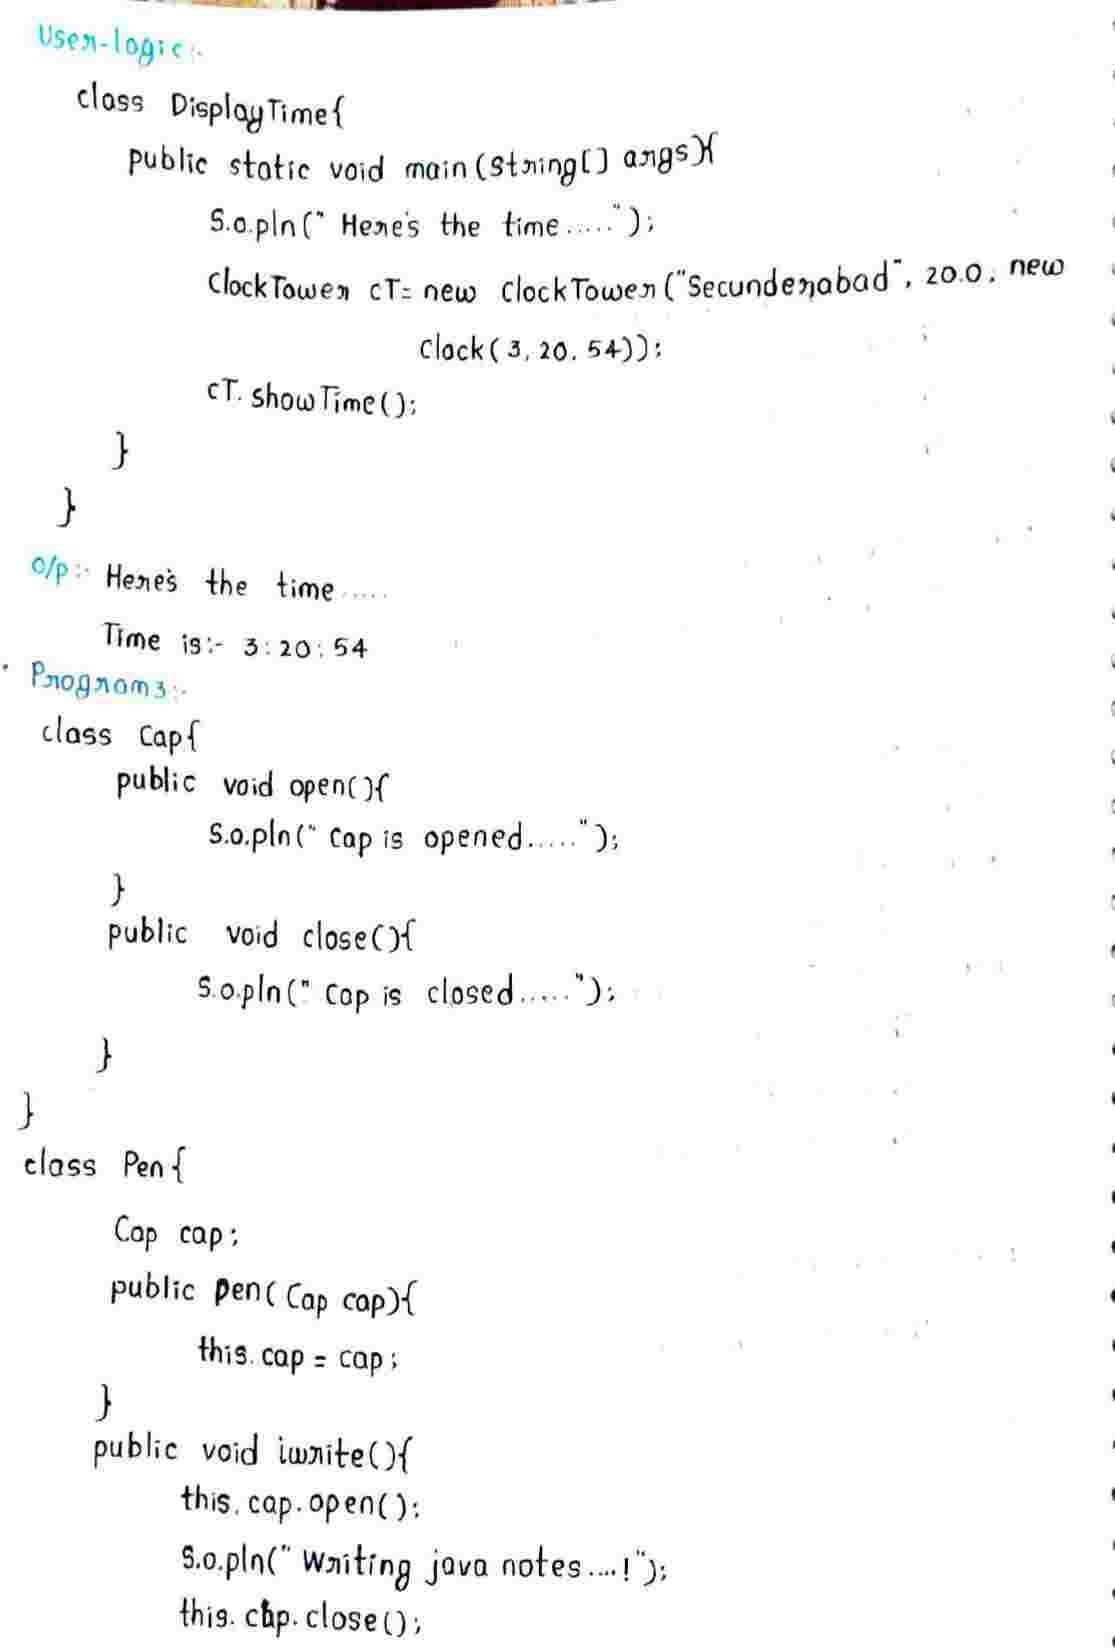 User-logic:-
class DisplayTime{
public static void main(String[] args){
S.o.pln(" Here's the time.....");
ClockTower cT= new ClockTower("Secunderabad", 20.0, new
Clock(3, 20, 54));
cT. showTime();
}
}
O/p:- Here's the time.....
Time is:- 3:20:54
Program3:-
class Cap{
public void open(){
S.o.pln(" Cap is opened.....");
}
public void close(){
S.o.pln(" Cap is closed.....");
}
}
class Pen{
Cap cap;
public Pen( Cap cap){
this. cap = cap;
}
public void iwrite(){
this. cap. open();
S.o.pln(" Writing java notes....!");
this. cap. close();